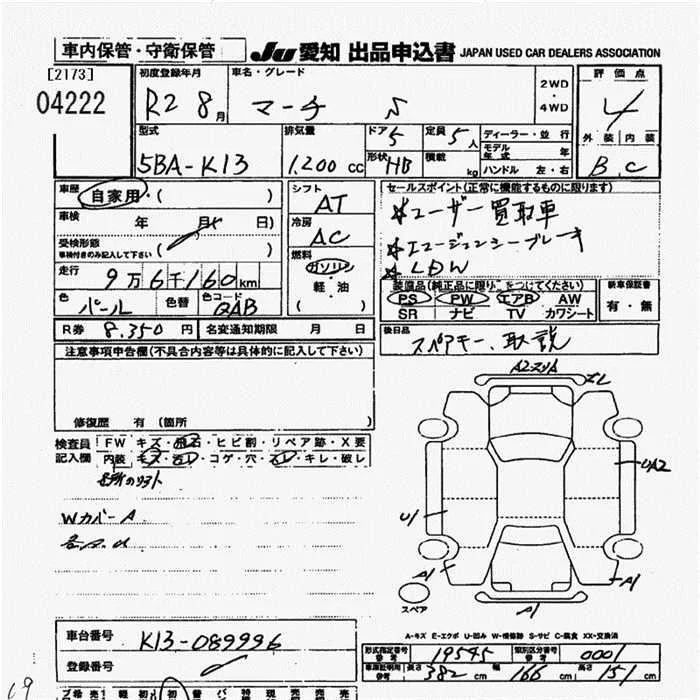 車内保管・守衛保管
JU 愛知 出品申込書 JAPAN USED CAR DEALERS ASSOCIATION
[2173]
04222
初度登録年月 R2 8月
車名・グレード マーチ S
2WD・4WD
評価点 4
外装 内装
B C
型式 5BA-K13
排気量 1.200 CC
ドア 5
形状 HB
定員 5人
積載 kg
ディーラー・並行
モデル年式 年
ハンドル 左・右
車歴 自家用・( )
車検 年 月( 日)
受検形態
車検付きのみ記入して下さい
走行 9万6千160km
色 パール 色替 色コード QAB
R券 8.350円 名変通知期限 月 日
シフト AT
冷房 AC
燃料 ガソリン
軽・油
( )
セールスポイント(正常に機能するものに限ります)
*ユーザー買取車
*エマージェンシーブレーキ
*LDW
装備品(純正品に限り○をつけてください)
PS PW エアB AW
SR ナビ TV カワシート
新車保証書
有・無
後日品
スペアキー、取説
注意事項申告欄(不具合内容等は具体的に記入して下さい)
修復歴 有(箇所 )
検査員記入欄
FW キズ・飛石・ヒビ割・リペア跡・X要
内装 キズ・汚レ・コゲ・穴・スレ・キレ・破レ
Wカバー A
A2スリA
ズレ
UA2
U1
A1
A1
スペア
A-キズ E-エクボ U-凹み W-補修跡 S-サビ C-腐食 XX-交換済
車台番号 K13-089996
登録番号
形式指定番号 参考 19545 類別区分番号 参考 0001
車庫証明用 参考 長さ 382cm 幅 166cm 高さ 151cm